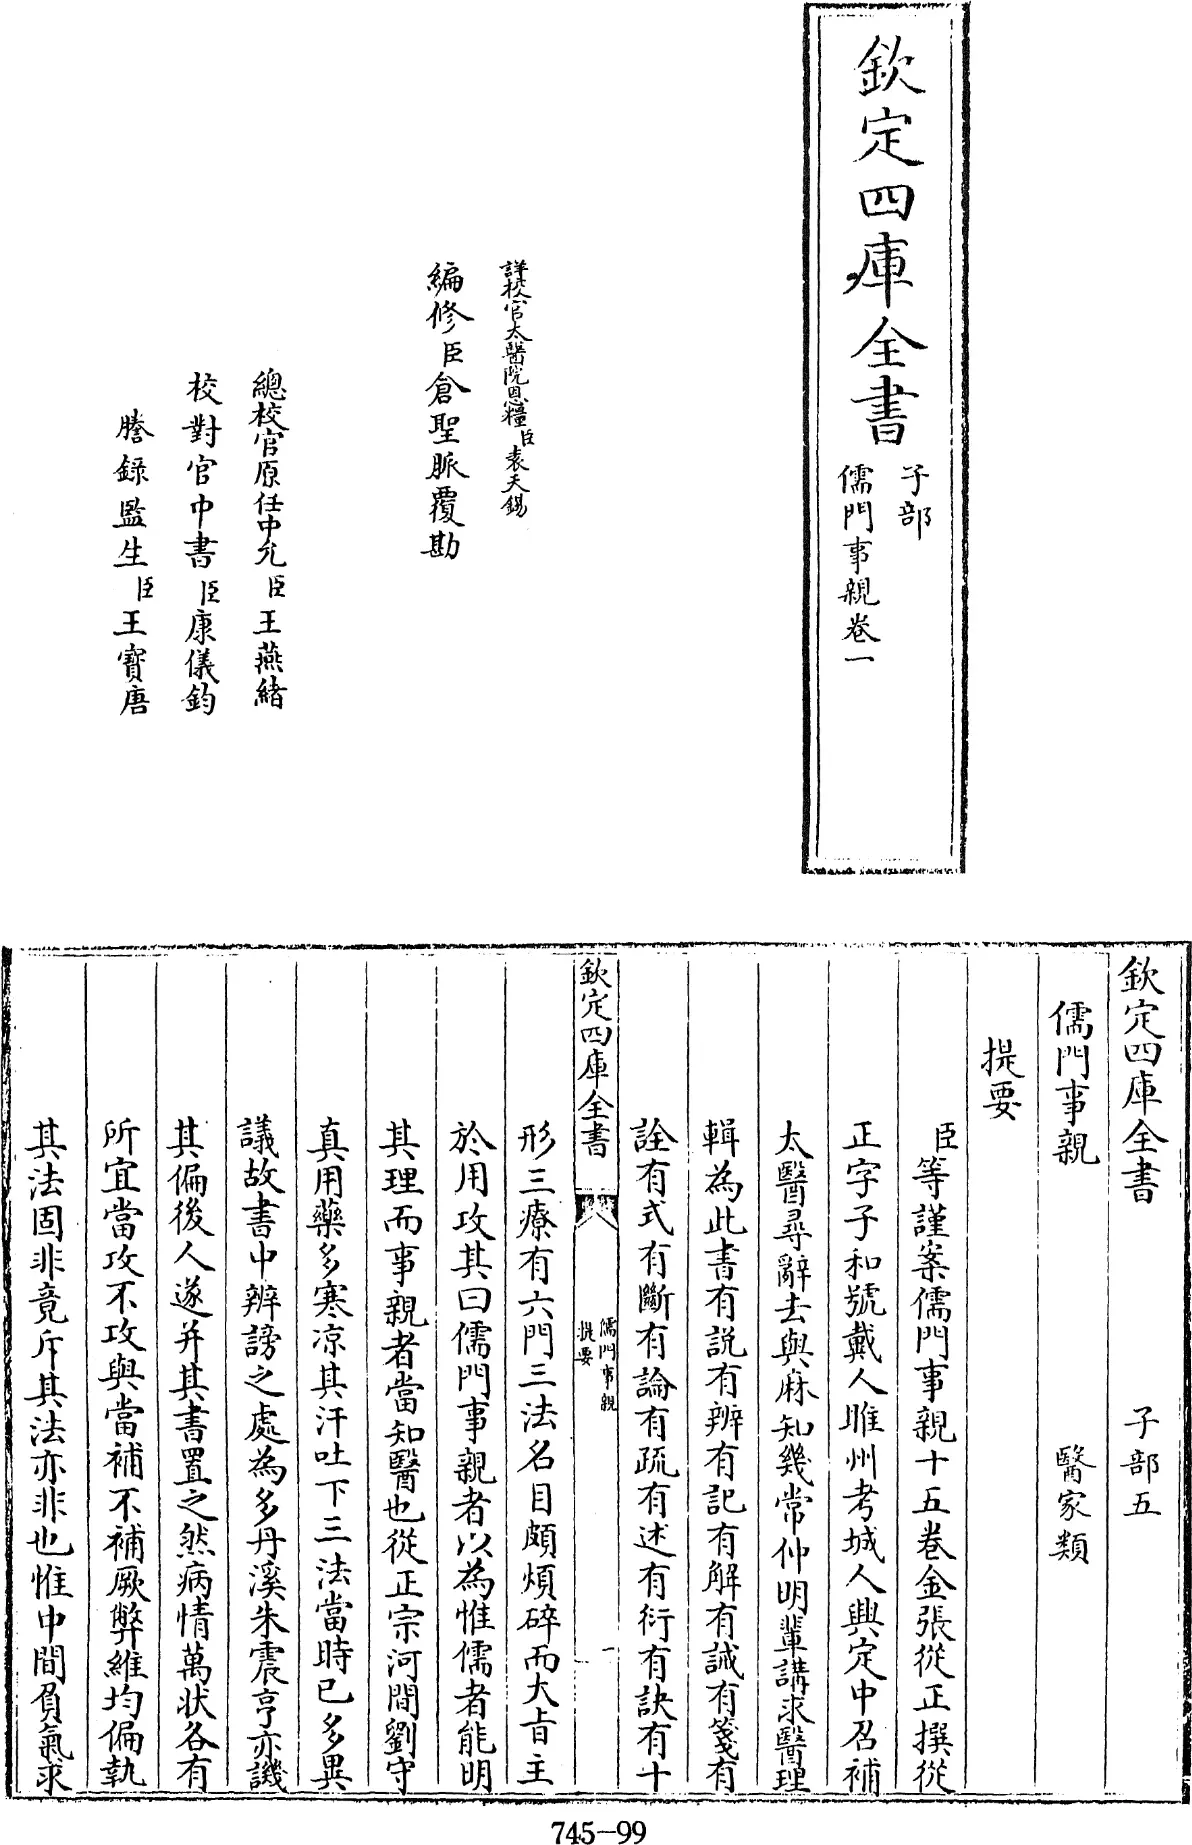 欽定四庫全書
子部
儒門事親卷一
詳校官太醫院恩糧臣袁天錫
編修臣倉聖脈覆勘
總校官原任中允臣王燕緒
校對官中書臣康儀鈞
謄錄監生臣王寶唐
欽定四庫全書 子部五
儒門事親 醫家類
提要
臣等謹案儒門事親十五卷金張從正撰從
正字子和號戴人睢州考城人興定中召補
太醫尋辭去與麻知幾常仲明輩講求醫理
輯為此書有説有辨有記有解有誡有箋有
詮有式有斷有論有疏有述有衍有訣有十
欽定四庫全書
儒門事親
提要
一
形三療有六門三法名目頗煩碎而大旨主
於用攻其曰儒門事親者以為惟儒者能明
其理而事親者當知醫也從正宗河間劉守
真用藥多寒凉其汗吐下三法當時已多異
議故書中辨謗之處為多丹溪朱震亨亦譏
其偏後人遂并其書置之然病情萬狀各有
所宜當攻不攻與當補不補厥弊維均偏執
其法固非竟斥其法亦非也惟中間負氣求
745-99